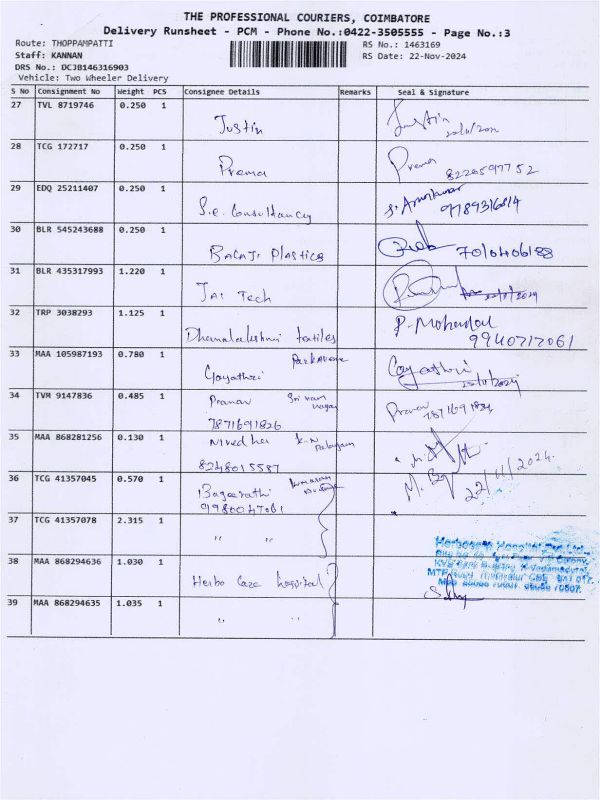 THE PROFESSIONAL COURIERS, COIMBATORE
Delivery Runsheet - PCM - Phone No.:0422-3505555 - Page No.:3
Route: THOPPAMPATTI
RS No.: 1463169
Staff: KANNAN
RS Date: 22-Nov-2024
DRS No.: DCJB146316903
Vehicle: Two Wheeler Delivery
S No Consignment No Weight PCS Consignee Details Remarks Seal & Signature
27 TVL 8719746 0.250 1
Justin Justin
28 TCG 172717 0.250 1
Prema Prema
8220597752
29 EDQ 25211407 0.250 1
S.e. Consultancy
9789316814
30 BLR 545243688 0.250 1
Balaji Plastics
31 BLR 435317993 1.220 1
Jai Tech
32 TRP 3038293 1.125 1
Dhanalakshmi textiles
9940717061
33 MAA 105987193 0.780 1
Gayathri Gayathri
22/11/2024
34 TVM 9147836 0.485 1
Pranav Sri ram nagar Pranav
7871691826
35 MAA 868281256 0.130 1
Nivedha K.N
8248015587
22/11/2024.
36 TCG 41357045 0.570 1
37 TCG 41357078 2.315 1
" "
38 MAA 868294636 1.030 1
Herbo Care hospital
39 MAA 868294635 1.035 1
" "